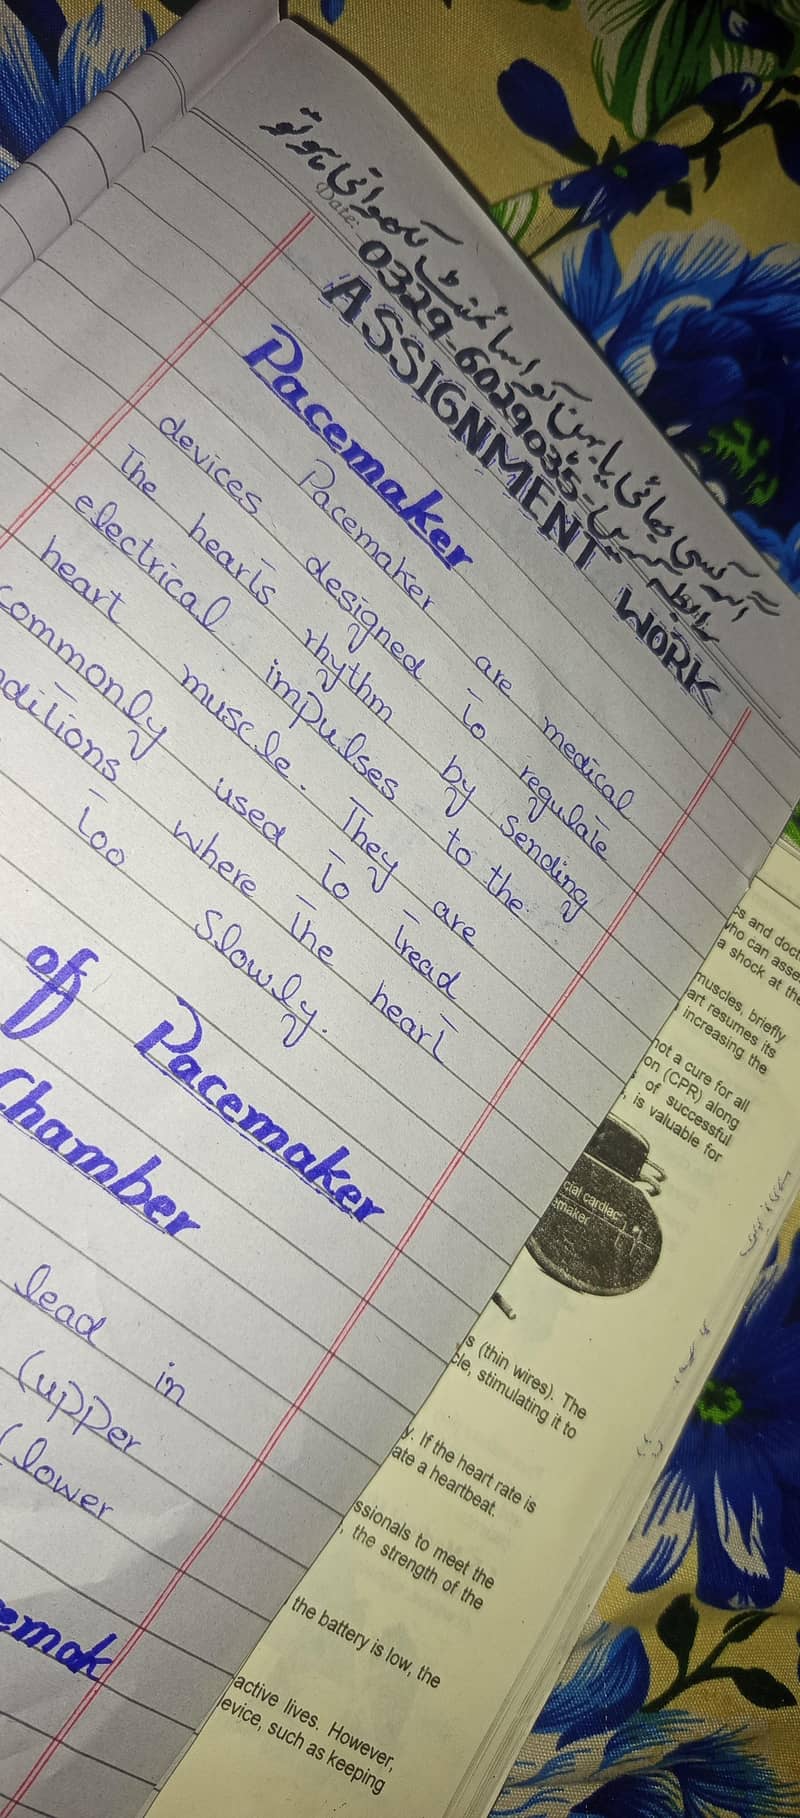 آپ کسی بھائی یا بہن کو اسائمنٹ لکھوانی ہو تو
رابطہ کریں۔ 0329-6029035
Date:
ASSIGNMENT WORK
Pacemaker
Pacemaker are medical
devices designed to regulate
The hearts rhythm by sending
electrical impulses to the
heart muscle. They are
commonly used to tread
ditions where the heart
too slowly.
of Pacemaker
Chamber
lead in
(upper
(lower
emak
cs and doct
who can asse
a shock at the
muscles, briefly
art resumes its
increasing the
not a cure for all
on (CPR) along
of successful
, is valuable for
cial cardiac
emaker
s (thin wires). The
cle, stimulating it to
y. If the heart rate is
ate a heartbeat.
ssionals to meet the
, the strength of the
the battery is low, the
active lives. However,
evice, such as keeping